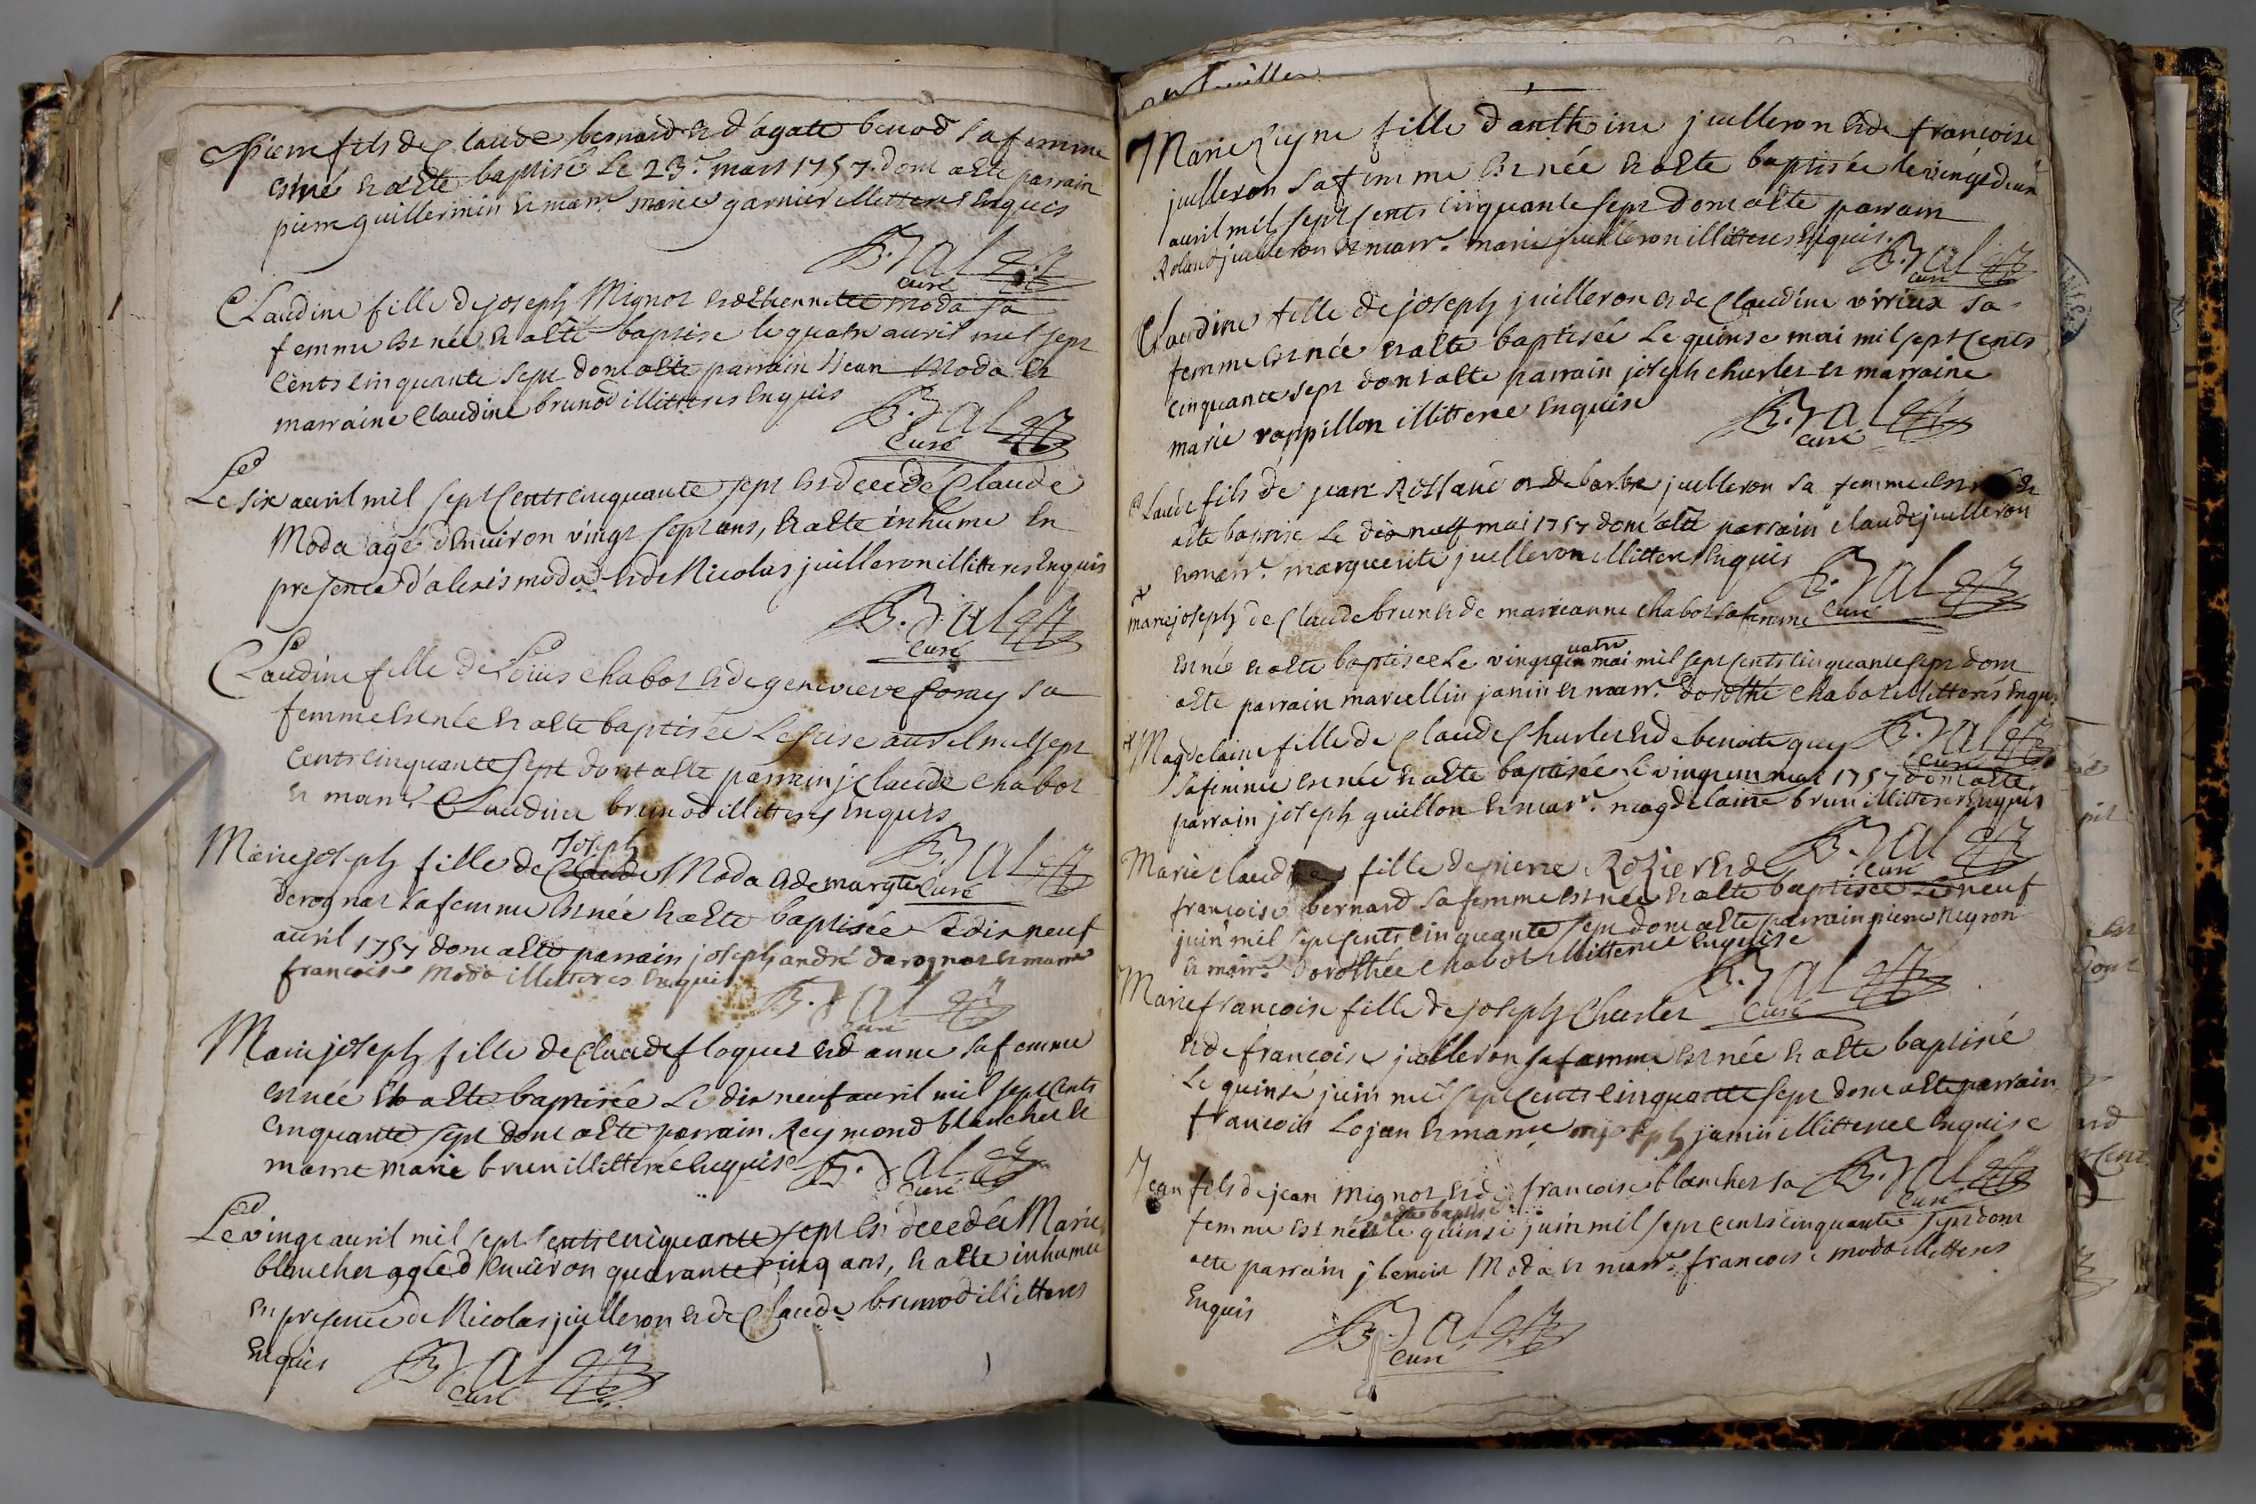 Pierre fils de Claude bernard et d'agate benod sa femme
est né et a été baptisé Le 23e. mars 1757. dont a été parrain
pierre guillermin et marr.e marie garnier illitteres Enquis
B. Jal
Curé
Claudine fille de joseph Mignot et d'Etiennette moda sa
femme est née et a été baptise le quatre avril mil sept
Cents cinquante sept dont a été parrain jean Moda et
marraine Claudine brunod illitteres Enquis
B. Jal
Curé
Le six avril mil sept Cents cinquante sept est decedé Claude
Moda agé d'environ vingt sept ans, et a été inhumé En
presence d'alexis moda et de Nicolas juilleron illitteres Enquis
B. Jal
Curé
Claudine fille de Loüis chabot et de genevieve foray sa
femme est née et a été baptisée Le seise avril mil sept
Cents cinquante sept dont a été parrain j Claude chabot
et marr.e Claudine brunod illitteres Enquis
B. Jal
Curé
Joseph
Marie joseph fille de Claude Moda et de margte
derognat sa femme est née et a été baptisée Le dix neuf
avril 1757 dont a été parrain joseph andré derognat et marre
francoise Moda illitteres Enquis
B. Jal
Curé
Marie joseph fille de Claude floquet et d'anne sa femme
est née Et a été baptisée Le dix neuf avril mil sept Cents
cinquante sept dont a été parrain Reymond blanchet et
marre marie brun illitteré Enquise
B. Jal
Curé
Le vingt avril mil sept Cents cinquante sept est decedée Marie
blanchet agée d'Environ quarante cinq ans, et a été inhumée
En presence de Nicolas juilleron et de Claude brunod illitteres
Enquis
B. Jal
Curé
Marie Reyne fille d'anthoine juilleron et de françoise
juilleron sa femme est née et a été baptisée le vingt deux
avril mil sept Cents cinquante sept dont a été parrain
Roland juilleron et marr.e marie juilleron illitteres Enquis.
B. Jal
Curé
Claudine fille de joseph juilleron et de Claudine virieux sa
femme est née et a été baptisée Le quinse mai mil sept Cents
cinquante sept dont a été parrain joseph churlet et marraine
marie rappillon illitterée Enquise
B. Jal
Curé
Claude fils de jean Rolland et de barbe juilleron sa femme est né et
a été baptisé Le dix neuf mai 1757 dont a été parrain claude juilleron
et marr.e marguerite juilleron illitteres Enquis
B. Jal
Curé
marie joseph de Claude brun et de marieanne chabot sa femme
uatre
est née et a été baptisée Le vingt mai mil sept Cents cinquante sept dont
a été parrain marcellin janin et marr.e dorothé chabot illitterés Enquis
B. Jal
Curé
Magdelaine fille de Claude Churlet et de benoite guy
sa femme est née et a été baptisée Le vingt un mai 1757 dont a été
parrain joseph guillon et marr.e magdelaine brun illitteres Enquis
B. Jal
Curé
Marie Claudine fille de pierre Rozier et de
françoise bernard sa femme est née et a été baptisée Le neuf
juin mil sept Cents cinquante sept dont a été parrain pierre Neyron
et marr.e dorothée chabot illitterée Enquise
B. Jal
Curé
Marie francoise fille de joseph Churlet
et de francoise juilleron sa famme est née et a été baptisée
Le quinse juin mil sept Cents cinquante sept dont a été parrain
francois Lojan et marre mjoseph janin illitterée Enquise
B. Jal
Curé
Jean fils de jean mignot et de francoise blanchet sa
a été baptisé
femme est né et le quinse juin mil sept cents cinquante sept dont
a été parrain j benoit Moda et marr.e francoise moda illitteres
Enquis
B. Jal
Curé